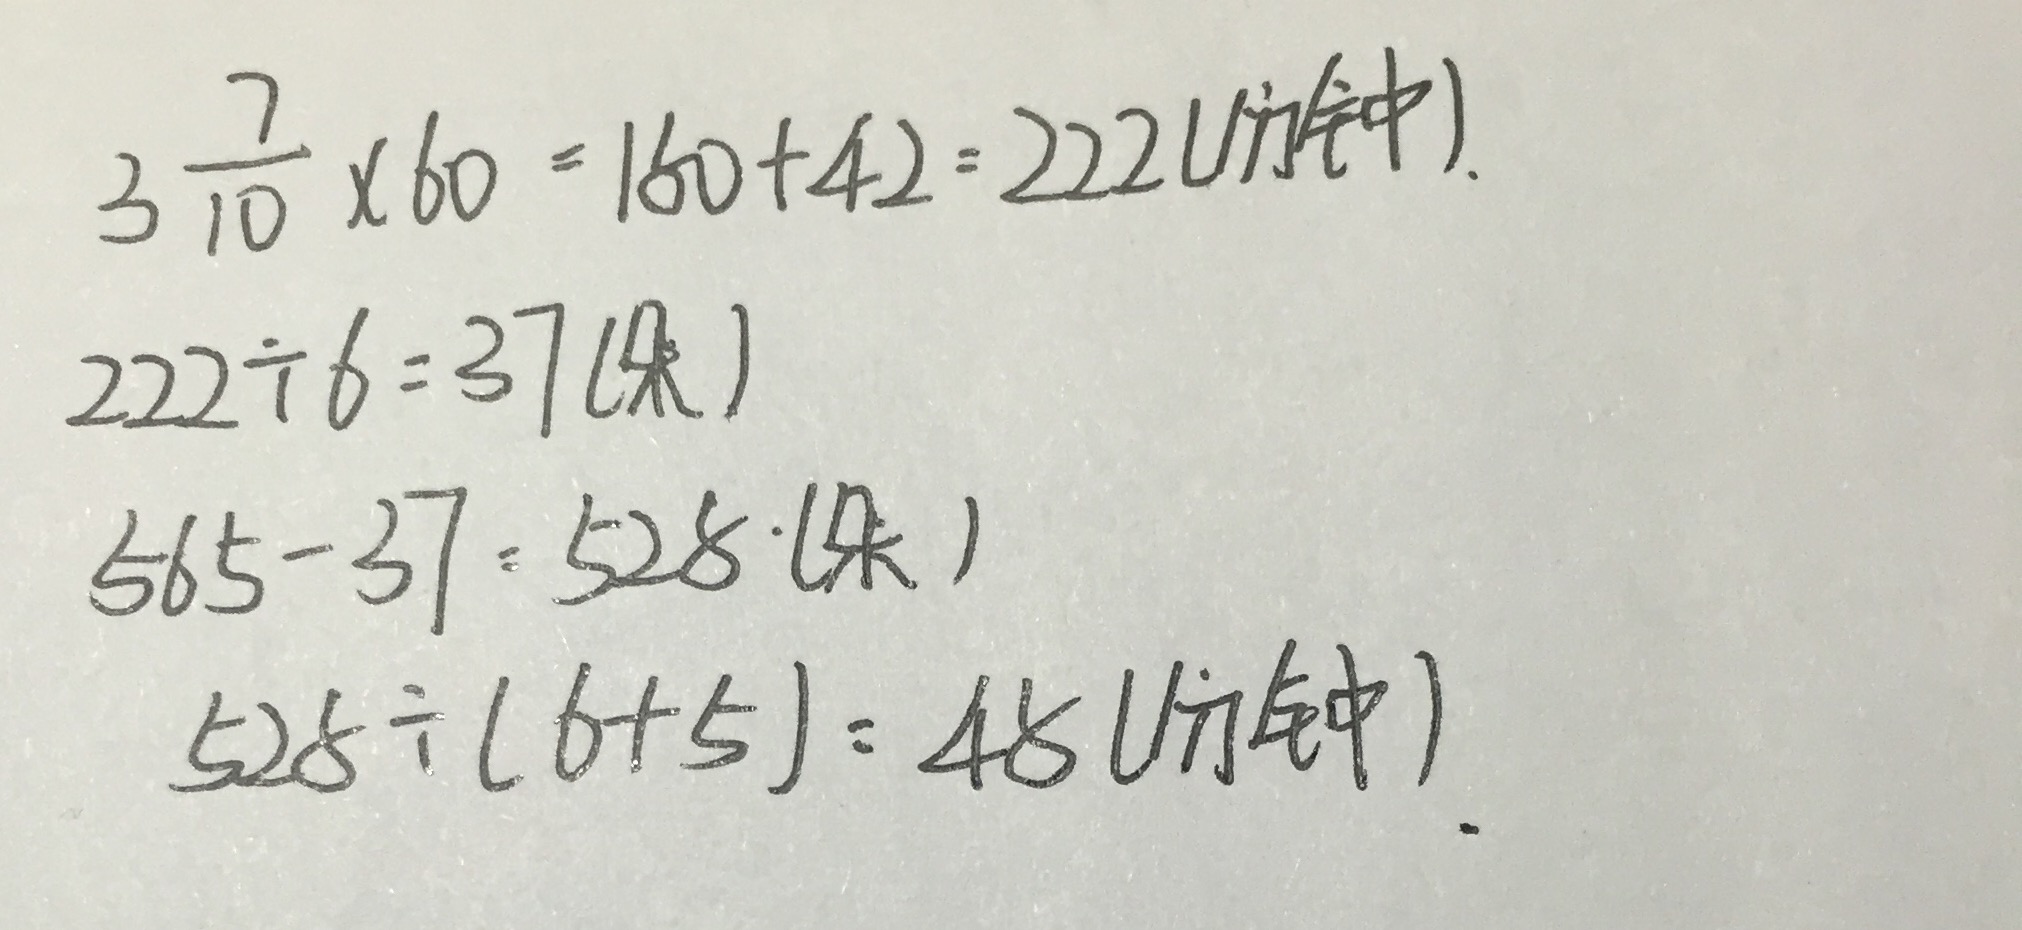 3 7/10 ×60=160+42=222(分钟).
222÷6=37(朵)
565-37=528.(朵)
528÷(6+5)=48(分钟).